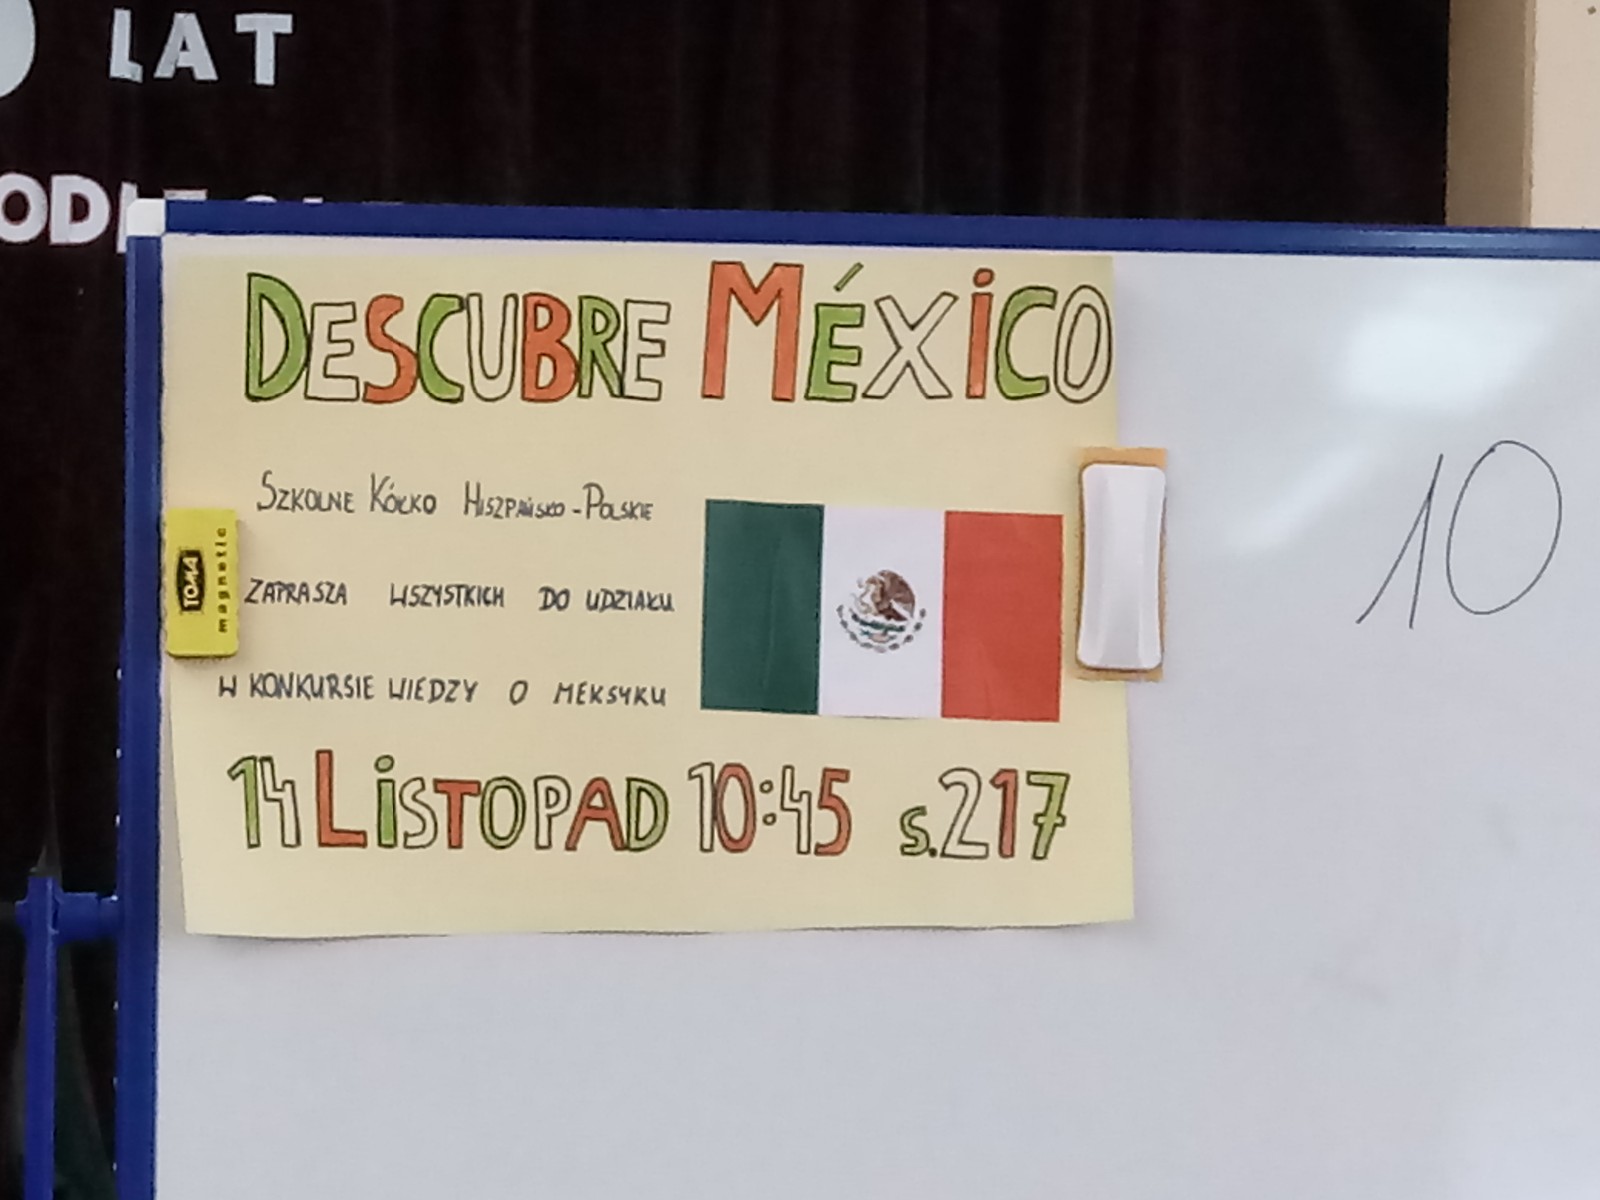 LAT
DESCUBRE MÉXICO
SZKOLNE KÓŁKO HISZPAŃSKO-POLSKIE
ZAPRASZA WSZYSTKICH DO UDZIAŁU
W KONKURSIE WIEDZY O MEKSYKU
14 LISTOPAD 10:45 s.217
TOMA
magnetic
10